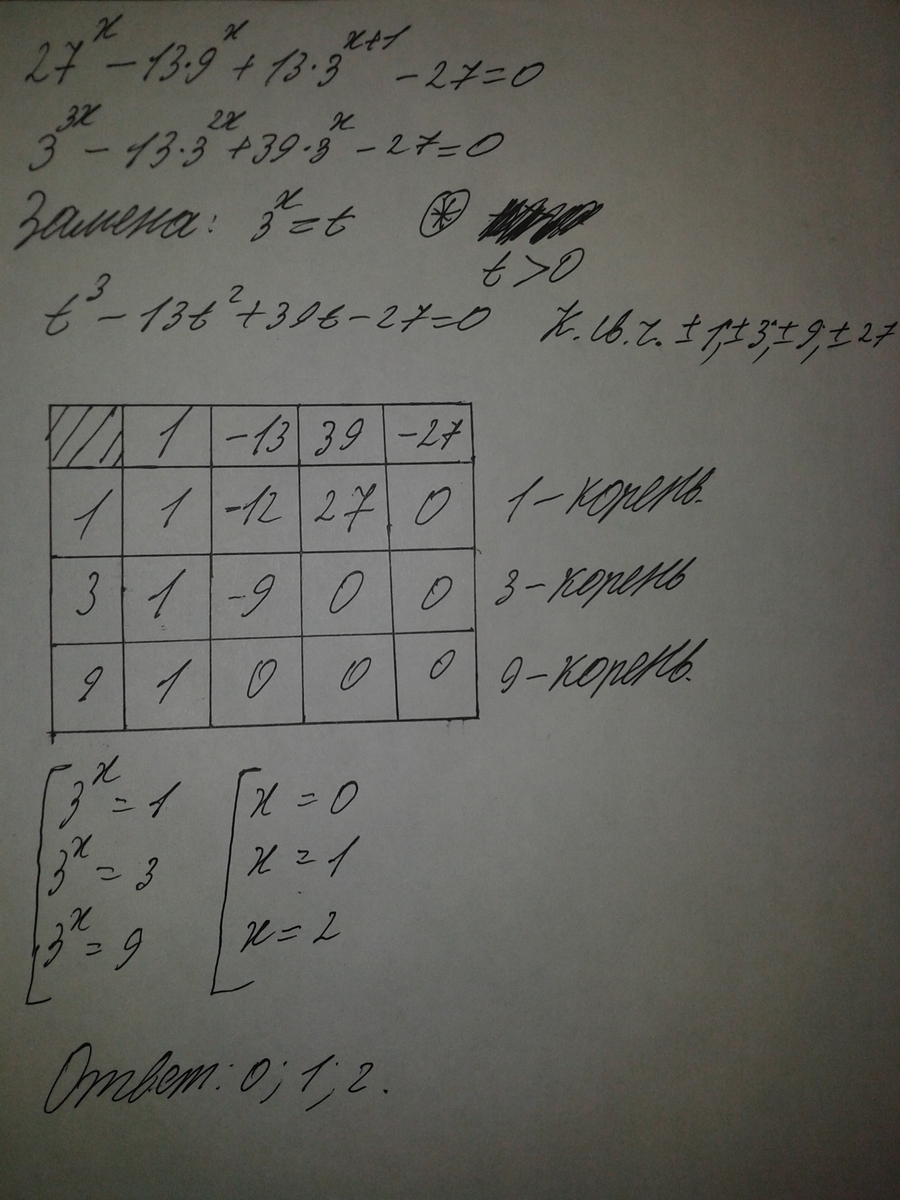 27^x - 13·9^x + 13·3^{x+1} - 27 = 0
3^{3x} - 13·3^{2x} + 39·3^x - 27 = 0
Замена: 3^x = t ⊛
t > 0
t^3 - 13t^2 + 39t - 27 = 0 К. св. ч. ±1; ±3; ±9; ±27
1 -13 39 -27
1 1 -12 27 0 1 - корень.
3 1 -9 0 0 3 - корень
9 1 0 0 0 9 - корень.
3^x = 1 x = 0
3^x = 3 x = 1
3^x = 9 x = 2
Ответ: 0; 1; 2.